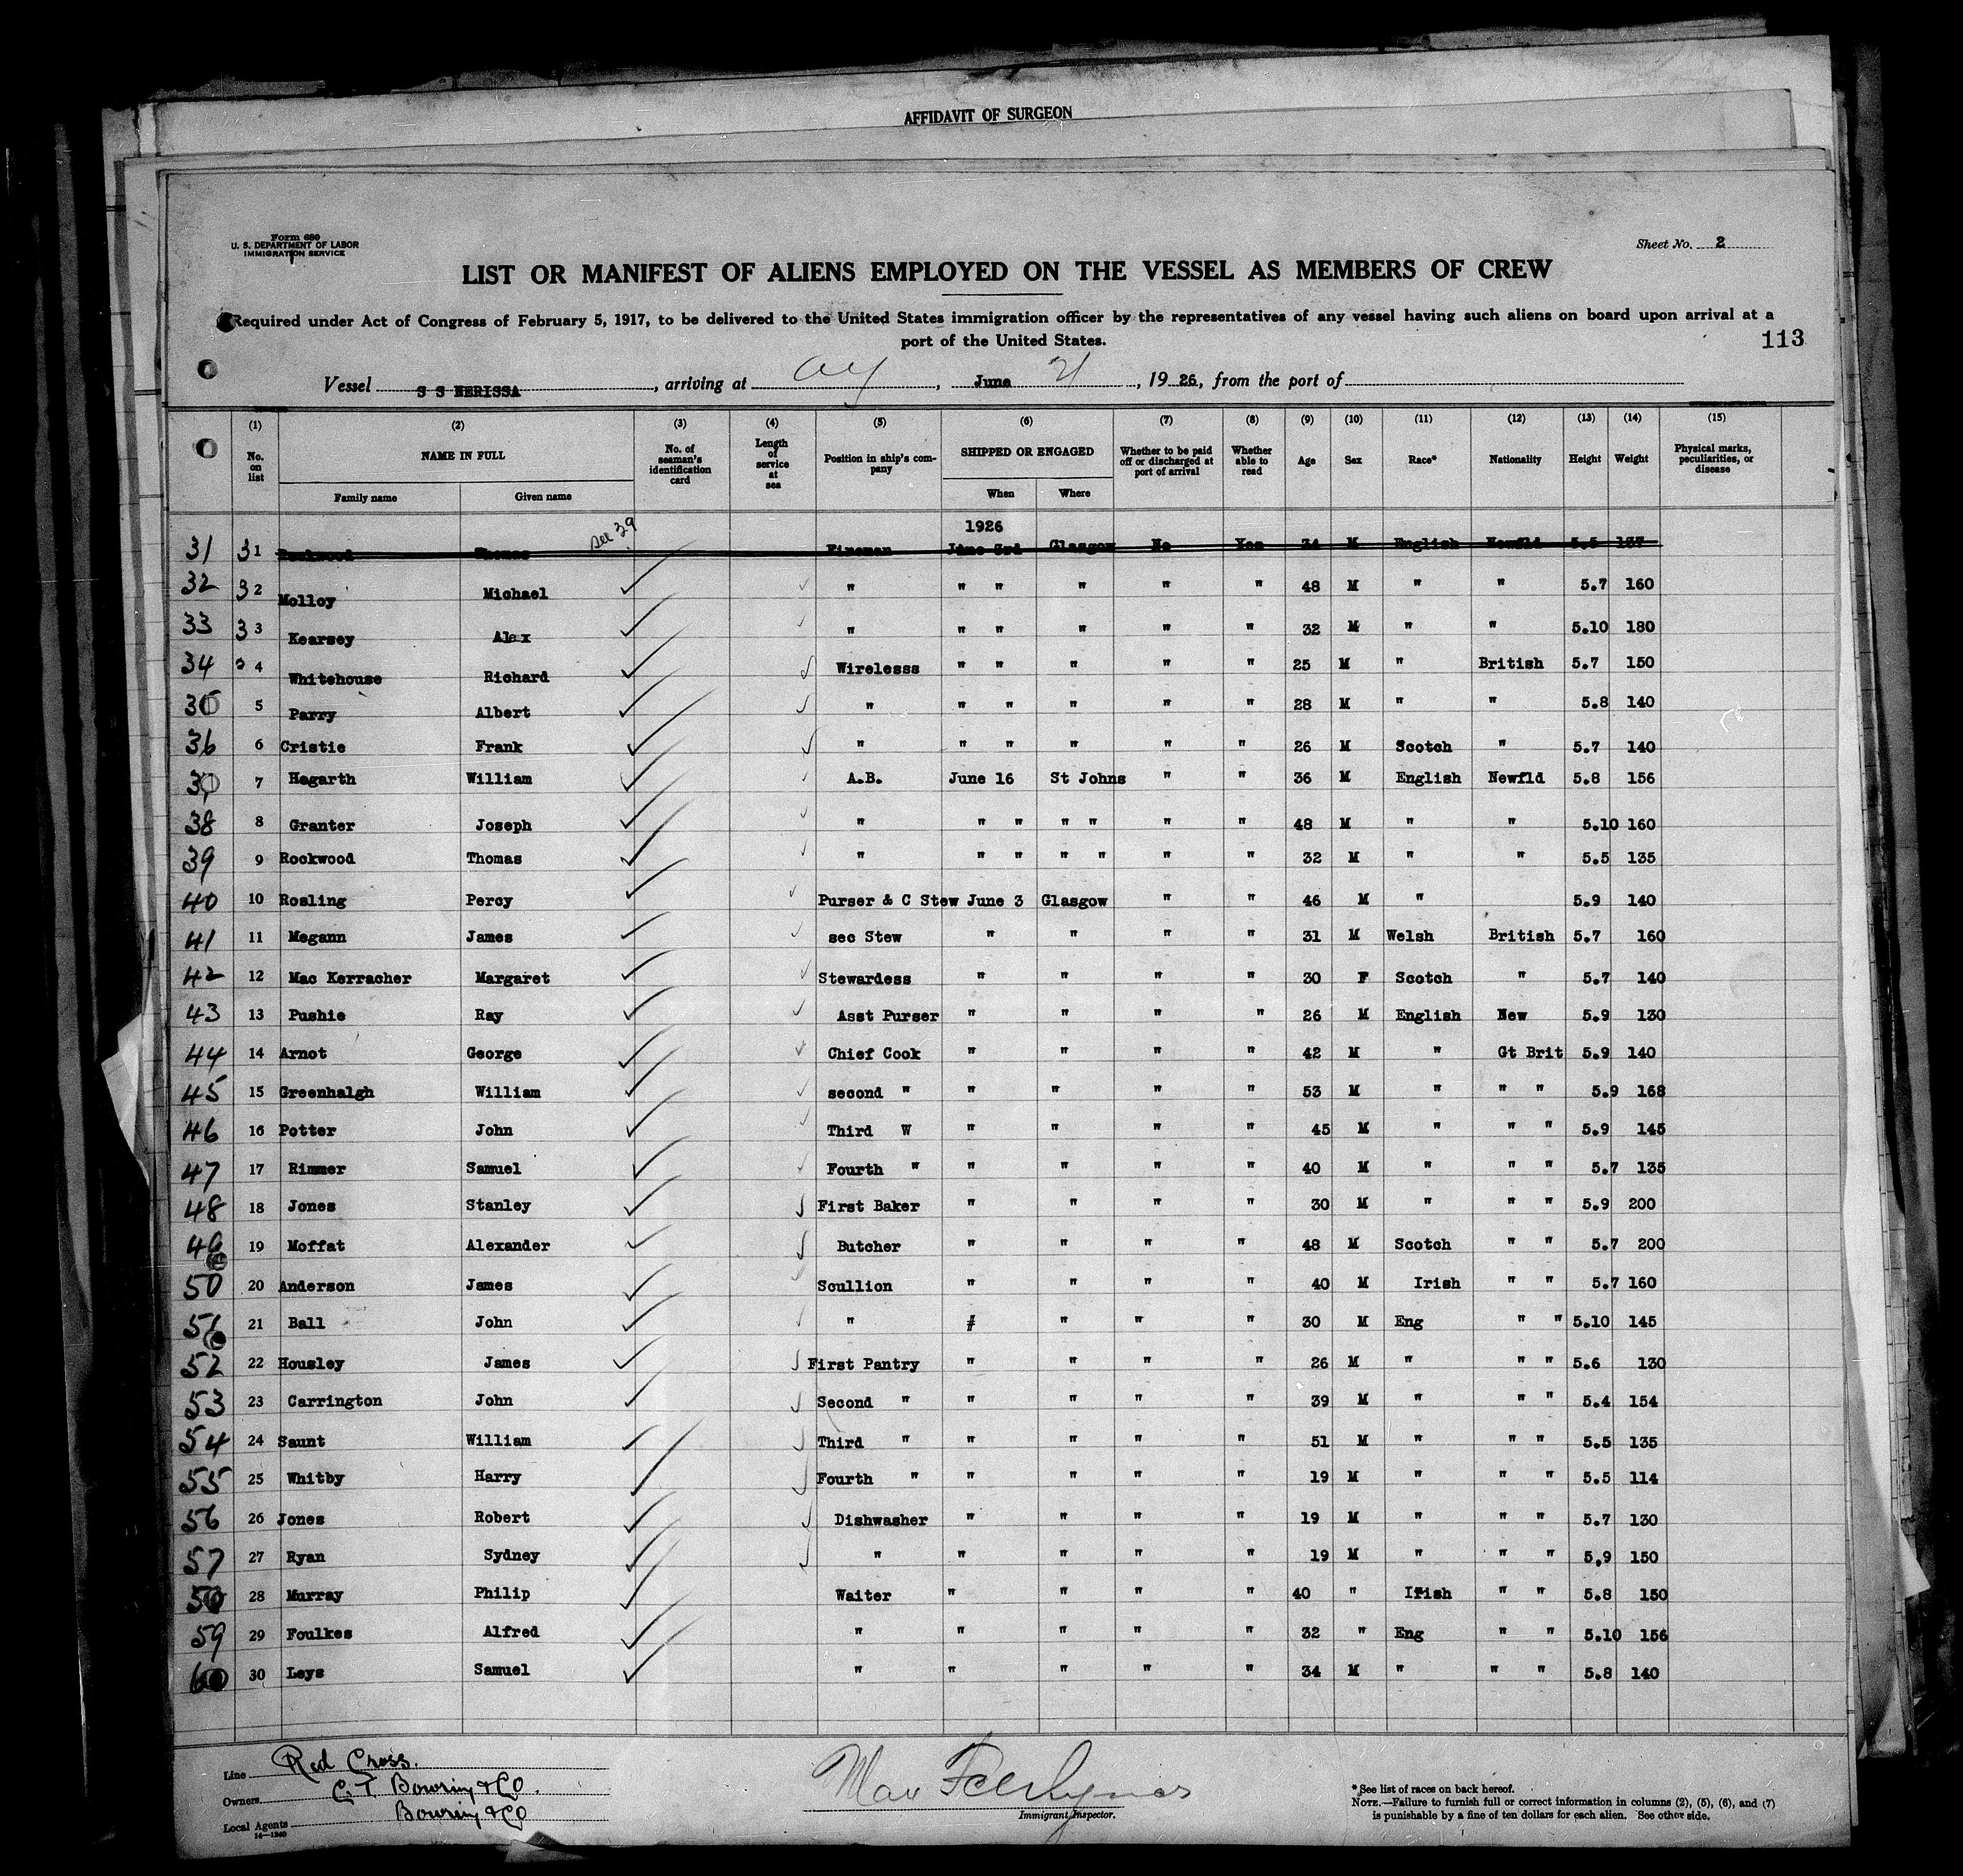 AFFIDAVIT OF SURGEON
Form 680
U. S. DEPARTMENT OF LABOR
IMMIGRATION SERVICE
Sheet No. 2
LIST OR MANIFEST OF ALIENS EMPLOYED ON THE VESSEL AS MEMBERS OF CREW
Required under Act of Congress of February 5, 1917, to be delivered to the United States immigration officer by the representatives of any vessel having such aliens on board upon arrival at a
port of the United States.
113
Vessel S S NERISSA, arriving at , June 21, 1926, from the port of
(1) (2) (3) (4) (5) (6) (7) (8) (9) (10) (11) (12) (13) (14) (15)
No. on list NAME IN FULL No. of seaman's identification card Length of service at sea Position in ship's company SHIPPED OR ENGAGED Whether to be paid off or discharged at port of arrival Whether able to read Age Sex Race* Nationality Height Weight Physical marks, peculiarities, or disease
Family name Given name When Where
1926
31 31 Rockwood Thomas See 39 Fireman June 3rd Glasgow No Yes 34 M English Newfld 5.5 137
32 32 Molloy Michael " " " " " " 48 M " " 5.7 160
33 33 Kearsey Alex " " " " " " 32 M " " 5.10 180
34 34 Whitehouse Richard Wirelesss " " " " " 25 M " British 5.7 150
35 5 Parry Albert " " " " " " 28 M " " 5.8 140
36 6 Cristie Frank " " " " " " 26 M Scotch " 5.7 140
37 7 Hagarth William A.B. June 16 St Johns " " 36 M English Newfld 5.8 156
38 8 Granter Joseph " " " " " " " 48 M " " 5.10 160
39 9 Rockwood Thomas " " " " " " " 32 M " " 5.5 135
40 10 Rosling Percy Purser & C Stew June 3 Glasgow " " 46 M " 5.9 140
41 11 Megann James sec Stew " " " " 31 M Welsh British 5.7 160
42 12 Mac Kerracher Margaret Stewardess " " " " 30 F Scotch " 5.7 140
43 13 Pushie Ray Asst Purser " " " " 26 M English New 5.9 130
44 14 Arnot George Chief Cook " " " " 42 M " Gt Brit 5.9 140
45 15 Greenhalgh William second " " " " " 53 M " " " 5.9 168
46 16 Potter John Third W " " " " 45 M " " " 5.9 145
47 17 Rimmer Samuel Fourth " " " " " 40 M " " " 5.7 135
48 18 Jones Stanley First Baker " " " " 30 M " " " 5.9 200
49 19 Moffat Alexander Butcher " " " " 48 M Scotch " " 5.7 200
50 20 Anderson James Scullion " " " " 40 M Irish " " 5.7 160
51 21 Ball John " " " " 30 M Eng " " 5.10 145
52 22 Housley James First Pantry " " " " 26 M " " " 5.6 130
53 23 Carrington John Second " " " " " 39 M " " " 5.4 154
54 24 Saunt William Third " " " " " 51 M " " " 5.5 135
55 25 Whitby Harry Fourth " " " " " 19 M " " " 5.5 114
56 26 Jones Robert Dishwasher " " " " 19 M " " " 5.7 130
57 27 Ryan Sydney " " " " " 19 M " " " 5,9 150
58 28 Murray Philip Waiter " " " " 40 " Irish " " 5.8 150
59 29 Foulkes Alfred " " " " " 32 " Eng " " 5.10 156
60 30 Leys Samuel " " " " " 34 M " " " 5.8 140
Line Red Cross.
Owners C. T. Bowring & Co.
Local Agents Bowring & Co
14—1240
Immigrant Inspector.
*See list of races on back hereof.
NOTE.—Failure to furnish full or correct information in columns (2), (5), (6), and (7)
is punishable by a fine of ten dollars for each alien. See other side.